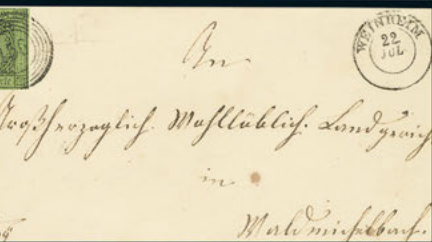 WEINHEIM
22
JUL
An
Großherzoglich. Wohllöblich. Landgerich
in
Waldmichelbach.